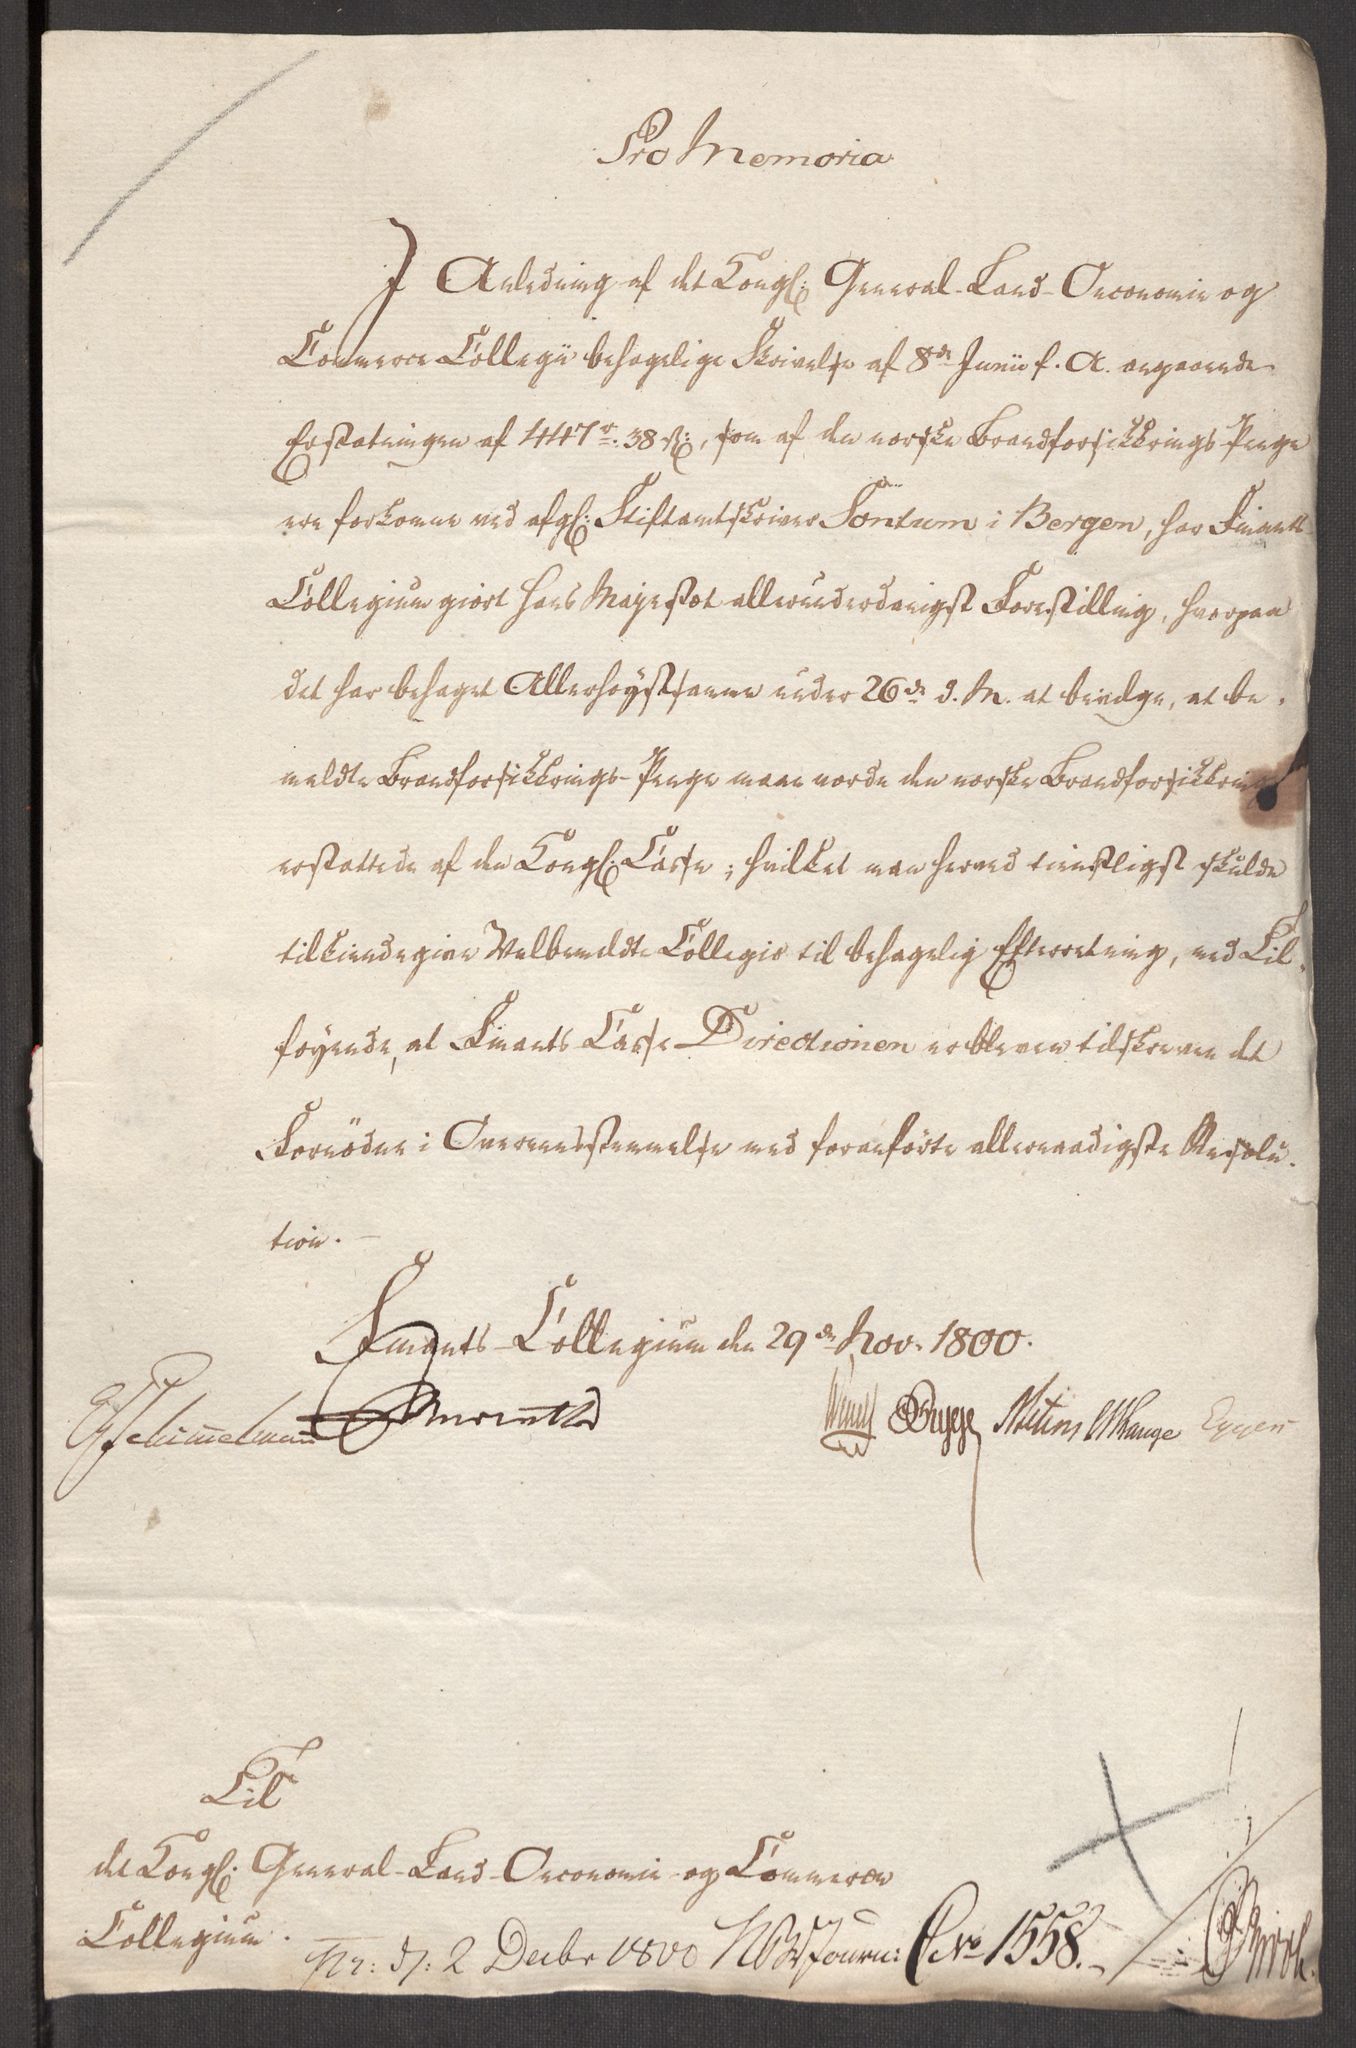 Pro Memoria
I Anledning af det Kongl: General-Land-Oeconomie og
Commerce Collegii behagelige Skrivelse af 8de Junii f. A. angaaende
Erstatningen af 447 r. 38 ß:, som af den norske Brandforsikkrings Penge
ere forkomne ved afgl: Stiftamtskriver Sontum i Bergen, har Finants
Collegium giort Hans Majestæt allerunderdanigst Forestilling, hvorpaa
det har behaget Allerhøystsamme under 26de d. M. at bevilge, at be-
meldte Brandforsikkrings-Penge maae vorde den norske Brandforsikkring
erstattede af den Kongl: Casse; hvilket man herved tienstligst skulde
tilkiendegive Velbemeldte Collegio til behagelig Efterretning, med Til-
føyende, at Finants Casse Directionen er bleven tilskreven det
Fornødne i Overeensstemmelse med foranførte allernaadigste Resolu-
tion.
Finants-Collegium den 29de Nov. 1800.
Schimmelmann
Bugge Lange Eggers
Til
det Kongl: General-Land-Oeconomie-og Commerce
Collegium.
Pr: d: 2 Decbr 1800 Journ: No 1558.